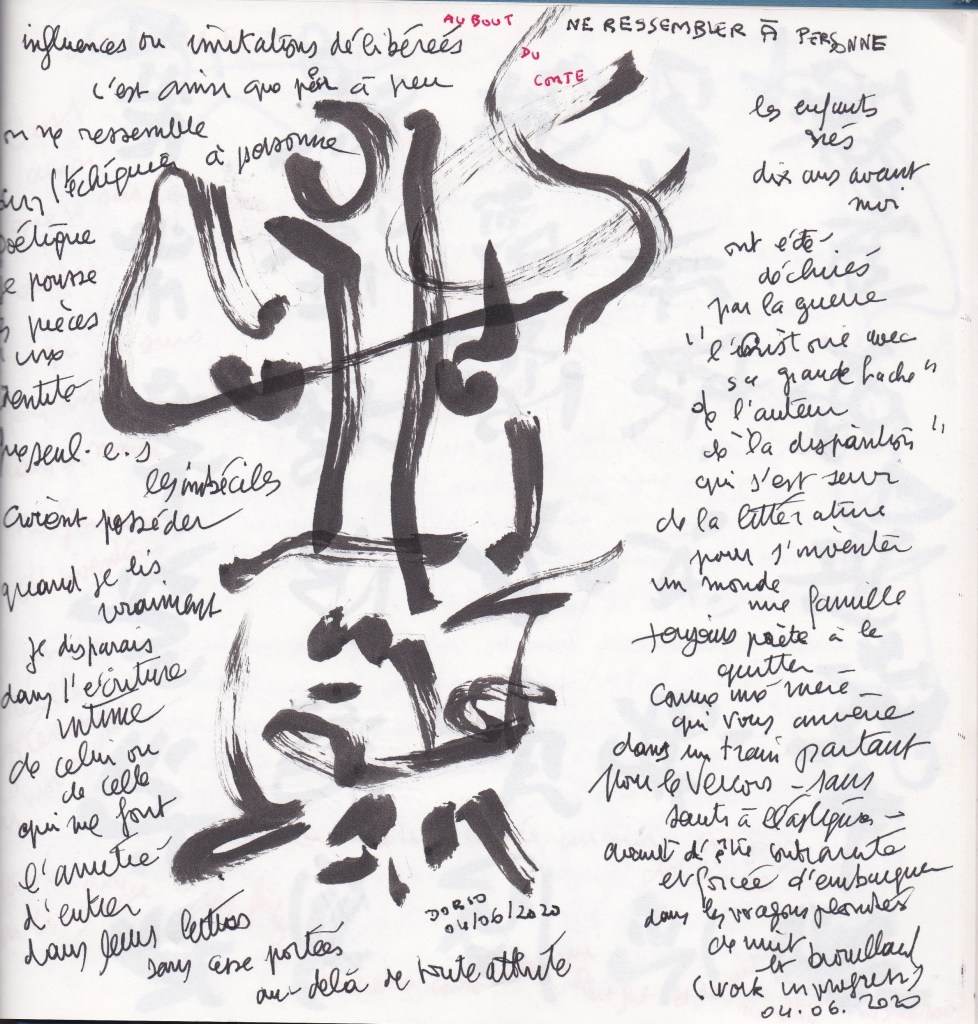 AU BOUT
DU
CONTE
NE RESSEMBLER À PERSONNE
influences ou imitations délibérées
c'est ainsi que peu à peu
on ne ressemble
à personne
sur l'échiquier
poétique
je pousse
pièces
une
identité
que seul.e.s
les imbéciles
croient posséder
quand je lis
vraiment
je disparais
dans l'écriture
intime
de celui ou
de celle
qui me font
l'amitié
d'entrer
dans leurs lettres
sans cesse portées
au-delà de toute attente
les enfants
nés
dix ans avant
moi
ont été
déchirés
par la guerre
"l'histoire avec
sa grande hache"
de l'auteur
de "la disparition"
qui s'est servi
de la littérature
pour s'inventer
un monde
une famille
toujours prête à le
quitter –
comme ma mère –
qui vous amène
dans un train partant
pour le Vercors – sans
avant d'être contrainte
et forcée d'embarquer
dans les wagons plombés
de nuit
et brouillard
(work in progress)
04.06.2020
DORIO
04/06/2020